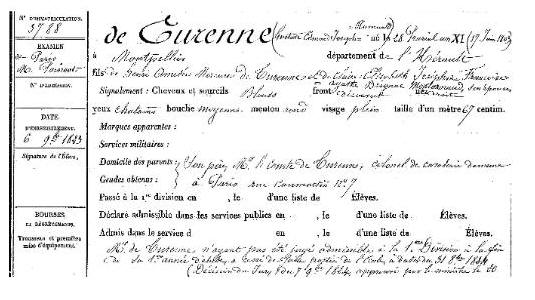 N° D'IMMATRICULATION.
5788
EXAMEN
de Paris
M.
N° D'ADMISSION.
DATE
D'ENREGISTREMENT.
6 9bre 1843
Signature de l'Élève.
BOURSES
OU DÉGRÈVEMENTS.
Trousseau et première
mise d'équipement.
de Turenne ( Edmond Joseph né le 28 an XI (17 Juin 1803)
à Montpellier département de l'Hérault
fils de Henri Amédée Mercure de Turenne et de Claire Elisabeth Joséphine Françoise
son épouse
Signalement : Cheveux et sourcils Blonds front découvert nez droit
yeux chatains bouche moyenne menton rond visage plein taille d'un mètre 67 centim.
Marques apparentes :
Services militaires :
Domicile des parents : Son père, Mr. le Comte de Turenne, colonel de cavalerie demeure
Grades obtenus : à Paris rue N° 7
Passé à la 1re division en , le d'une liste de Élèves.
Déclaré admissible dans les services publics en , le d'une liste de Élèves.
Admis dans le service d , le d'une liste de Élèves.
Mr. de Turenne n'ayant pas été jugé admissible à la 1ère Division à la fin
de sa 1ère année d'études, a cessé de faire partie de l'Ecole, à dater du 31 8bre 1844
(Décision du Jury du 7 9bre 1844, approuvée par le ministre le 20